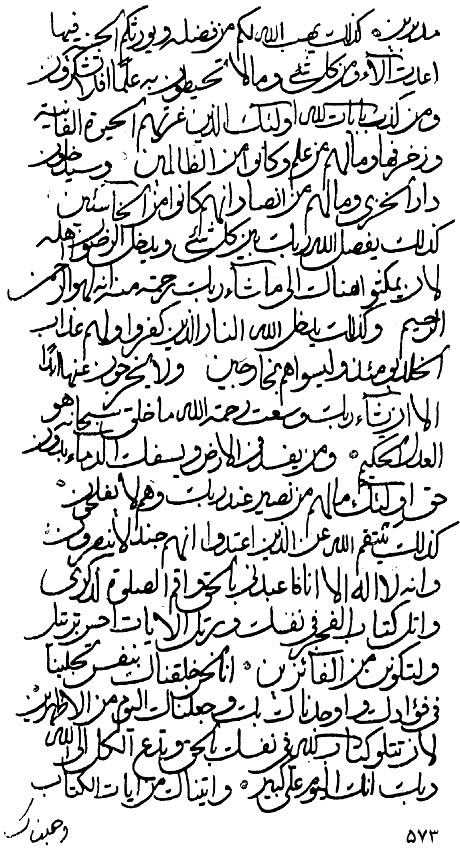 مدبرين كذلك يهب الله لكم من فضله ويورثكم الجنة فيها
اعدت آلاء من كل شئ وما لا تحيطون به علما افلا تشكرون
ومن كذب بايات الله اولئك الذين غرتهم الحيوة الفانية
وزخرفها وما لهم من علم وكانوا من الظالمين وسيدخلون
دار الخزي وما لهم من انصار انهم كانوا من الخاسئين
كذلك يفصل الله ربك بين كل شئ ويدخل الرضوان اهله
لان يمكثوا هناك الى ما شاء ربك رحمة منه انه لهو الرحمن
الرحيم وكذلك يدخل الله النار الذين كفروا ولهم عذاب
الخلد يومئذ وليسوا هم بخارجين ولا يخرجون عنها ابدا
الا ان يشاء ربك وسعت رحمة الله ما خلق سبحانه هو
العدل الحكيم ومن يفسد في الارض ويسفك الدماء بدون
حق اولئك ما لهم من نصير عند ربك وهم لا يفلحون
كذلك ينتقم الله عن الذين اعتدوا انهم جند لا ينصرون
وانه لا اله الا انا فاعبدني بالحق واقم الصلوة لذكرى
واتل كتاب الفجر في نفسك ورتل الايات احسن ترتيل
ولتكونن من الفائزين انا نحن خلقناك بنفس تجلينا
في فؤادك واوجدناك بك وجعلناك اليوم من الاظهرين
لان تتلو كتاب الله في نفسك بالحق وتدع الكل الى الله
ربك انك اليوم على كبير واتيناك من ايات الكتاب
وجعلناك
٥٧٣